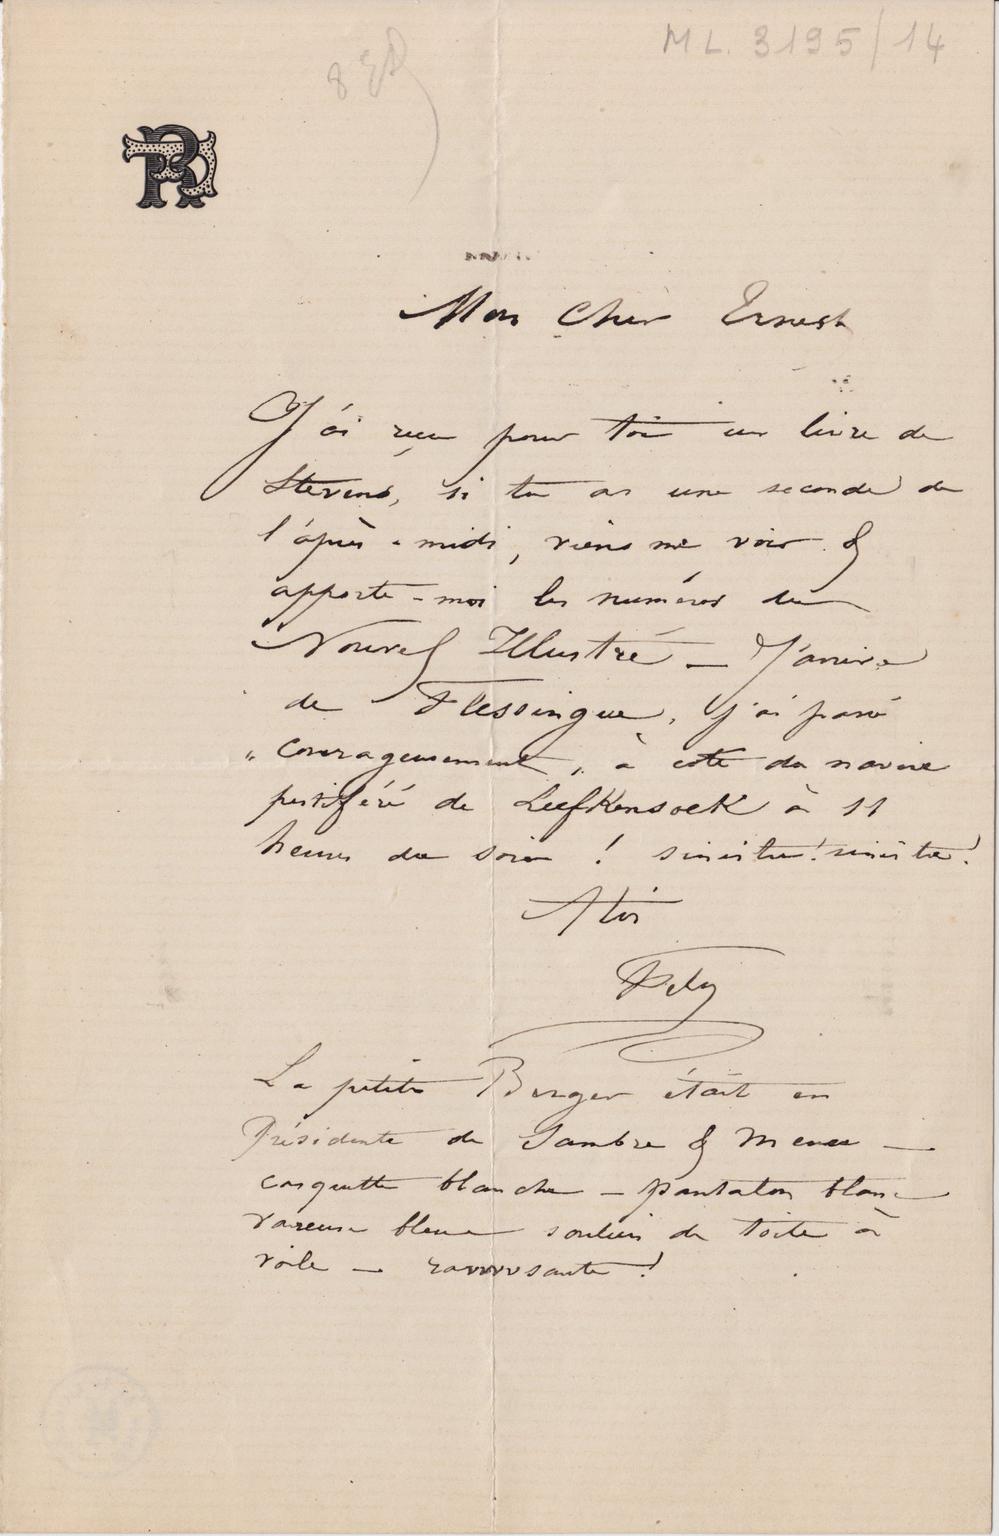 ML. 3195/14
Mon cher Ernest
J'ai reçu pour toi un livre de
Stevens, si tu as une seconde de
l'après-midi, viens me voir &
apporte-moi les numéros du
Nouvel Illustré — J'arrive
de Flessingue, j'ai passé
"courageusement" à coté du navire
pestiféré de Leefkensoek à 11
heures du soir ! sinistre! sinistre!
A toi
Fély
La petite Berger était en
Présidente de Sambre & Meuse —
casquette blanche — pantalon blanc
vareuse bleue souliers de toile à
voile — ravvvvssante !